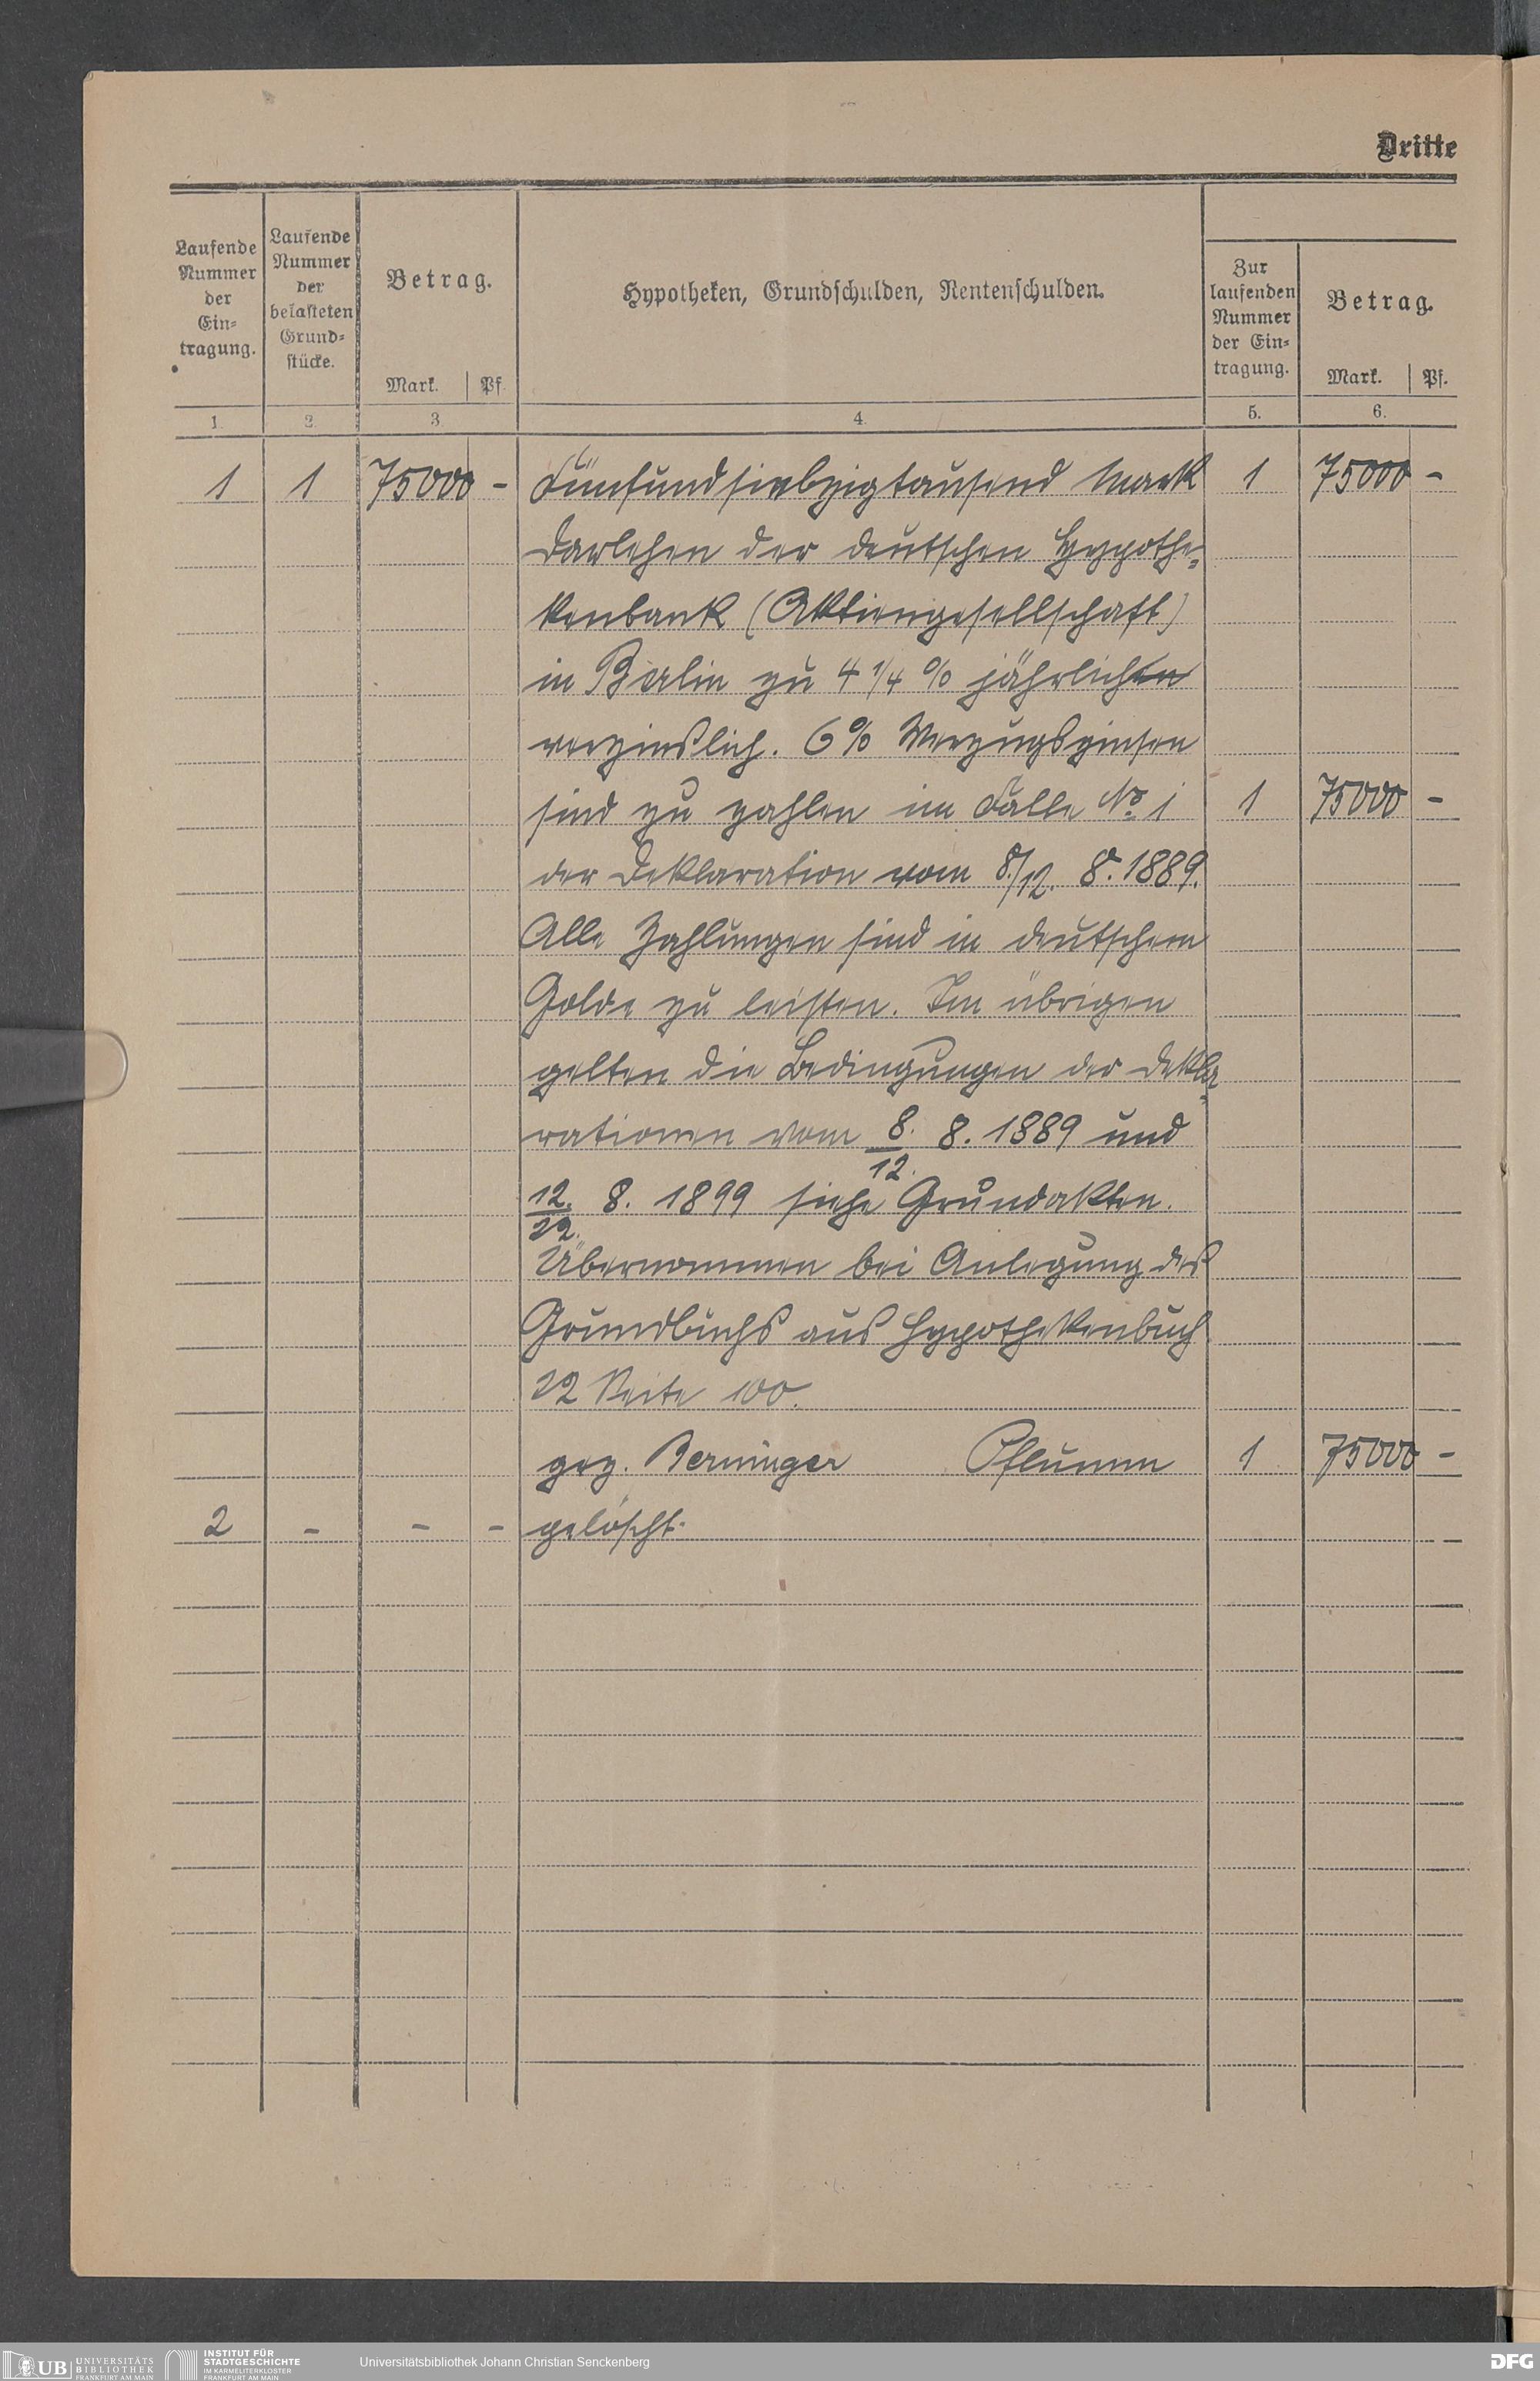 Dritte
Laufende Nummer der Ein- tragung.
Laufende Nummer der belasteten Grund- stücke.
Betrag.
Mark. Pf.
Hypotheken, Grundschulden, Rentenschulden.
Zur laufenden Nummer der Ein- tragung.
Betrag.
Mark. Pf.
1. 2. 3. 4. 5. 6.
1 1 75000 - Fünfundsiebzigtausend Mark 1 75000 -
Darlehen der deutschen Hypothe-
kenbank (Aktiengesellschaft)
in Berlin zu 4 1/4 % jährlichen
verzinslich. 6% Verzugszinsen
sind zu zahlen im Falle No 1 1 75000 -
der Deklaration vom 8./12. 8. 1889.
Alle Zahlungen sind in deutschem
Golde zu leisten. Im übrigen
gelten die Bedingungen der Dekla-
rationen vom 8./12. 8. 1889 und
12./22. 8. 1899 siehe Grundakten.
Übernommen bei Anlegung des
Grundbuchs aus Hypothekenbuch
22 Seite 100.
gez. Berninger Pflumm 1 75000 -
2 - - - gelöscht.
UB UNIVERSITÄTS BIBLIOTHEK FRANKFURT AM MAIN
INSTITUT FÜR STADTGESCHICHTE IM KARMELITERKLOSTER FRANKFURT AM MAIN
Universitätsbibliothek Johann Christian Senckenberg
DFG